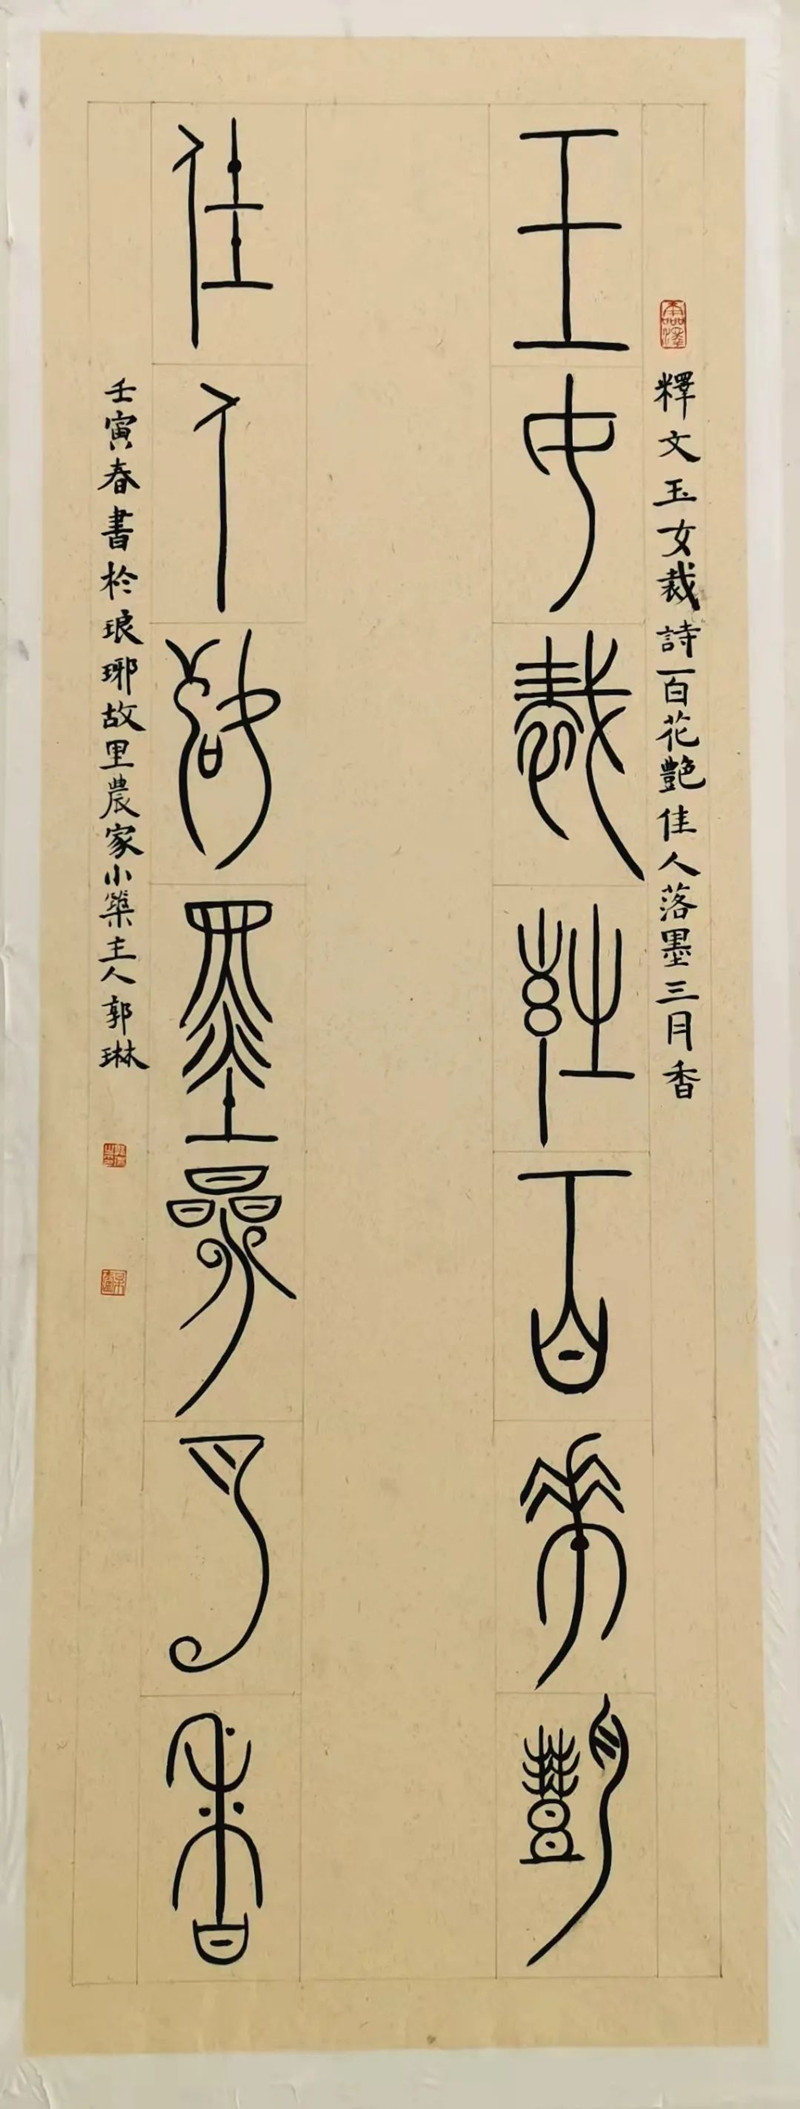 釋文玉女裁詩百花艷佳人落墨三月香
玉女裁詩百花艷
佳人落墨三月香
壬寅春書於琅琊故里農家小築主人郭琳